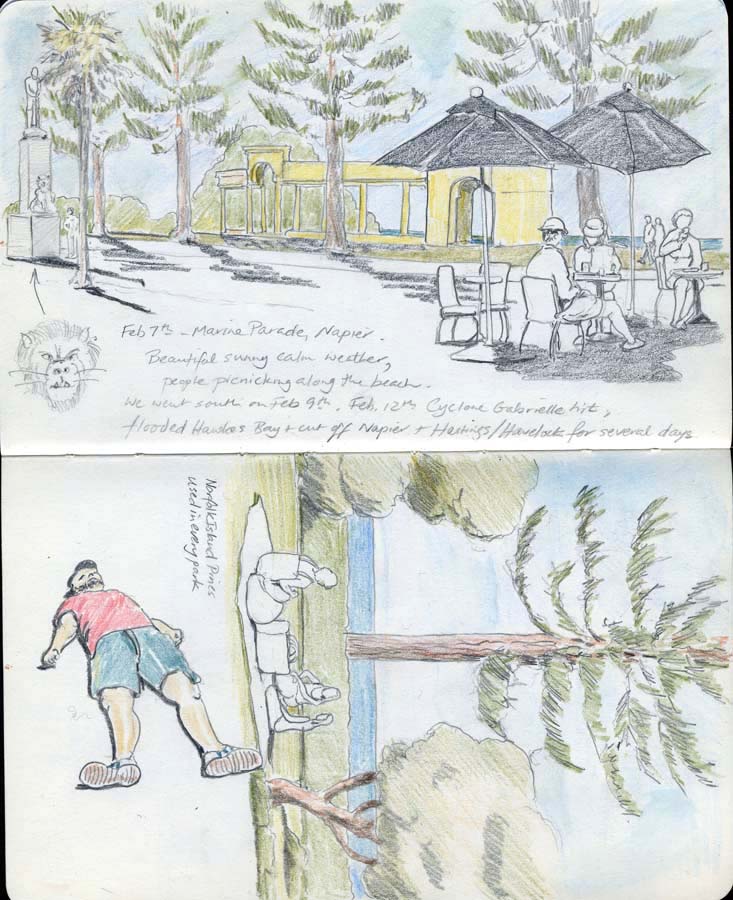 Feb 7th - Marine Parade, Napier.
Beautiful sunny calm weather,
people picnicking along the beach.
We went south on Feb 9th. Feb. 12th Cyclone Gabrielle hit,
flooded Hawkes Bay + cut off Napier + Hastings/Havelock for several days
Norfolk Island Pines
used in every park